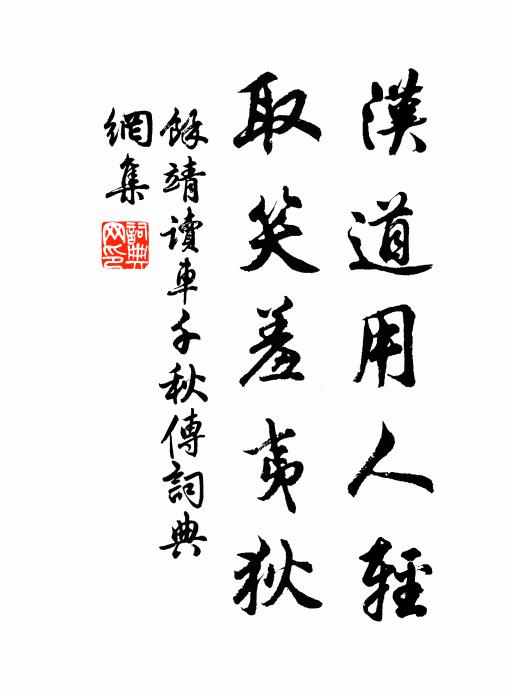 漢道用人輕
取笑羞夷狄
餘靖讀車千秋傳詞典
網集
詞典
网印